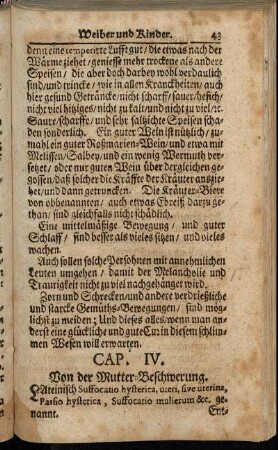 Weiber und Kinder. 43
denn eine temperirte Lufft gut / die etwas nach der
Wärme ziehet / geniesse mehr trockene als andere
Speisen / die aber doch darbey wohl verdaulich
sind / und trincke / wie in allen Kranckheiten / auch
hier gesund Getrāncke / nicht scharff / sauer / hefich /
nicht viel hitziges / nicht zu kalt / und nicht zu viel / ꝛc.
Saure / scharffe / und sehr saltzichte Speisen scha-
den sonderlich. Ein guter Wein ist nützlich / zu-
mahl ein guter Roßmarien-Wein / und etwa mit
Melissen / Salbey / und ein wenig Wermuth ver-
setzet / oder nur guten Wein über dergleichen ge-
gossen / daß solcher die Kräffte der Kräuter auszie-
het / und dann getruncken. Die Kräuter-Biere
von obbenannten / auch etwas Ebreiß darzu ge-
than / sind gleichfalls nicht schädlich.
Eine mittelmäßige Bewegung / und guter
Schlaff / sind besser als vieles sitzen / und vieles
wachen.
Auch sollen solche Persohnen mit annehmlichen
Leuten umgehen / damit der Melancholie und
Traurigkeit nicht zu viel nachgehänget wird.
Zorn und Schrecken / und andere verdrießliche
und starcke Gemüths-Bewegungen / sind mög-
lichst zu meiden: Und dieses alles / wenn man an-
derst eine glückliche und gute Cur in diesem schlim-
men Wesen will erwarten.
CAP. IV.
Von der Mutter-Beschwerung.
Lateinisch Suffocatio hysterica, uteri, sive uterina,
Passio hysterica, Suffocatio mulierum &c. ge-
nannt.
Ent-